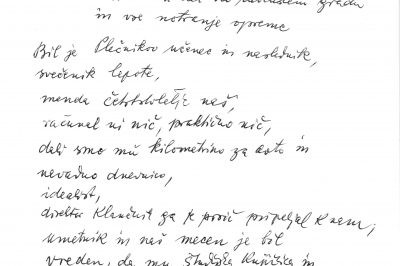 zgradu
in vse notranje opreme
Bil je Plečnikov učenec in naslednik,
svečenik lepote,
menda četrtstoletje naš,
računal ni nič, praktično nič,
dali smo mu kilometrino za avto in
navadno dnevnico,
idealist,
direktor Klančnik ga je prvič pripeljal k nam;
umetnik in naš mecen je bil
vreden, da mu Študijska knjižnica in